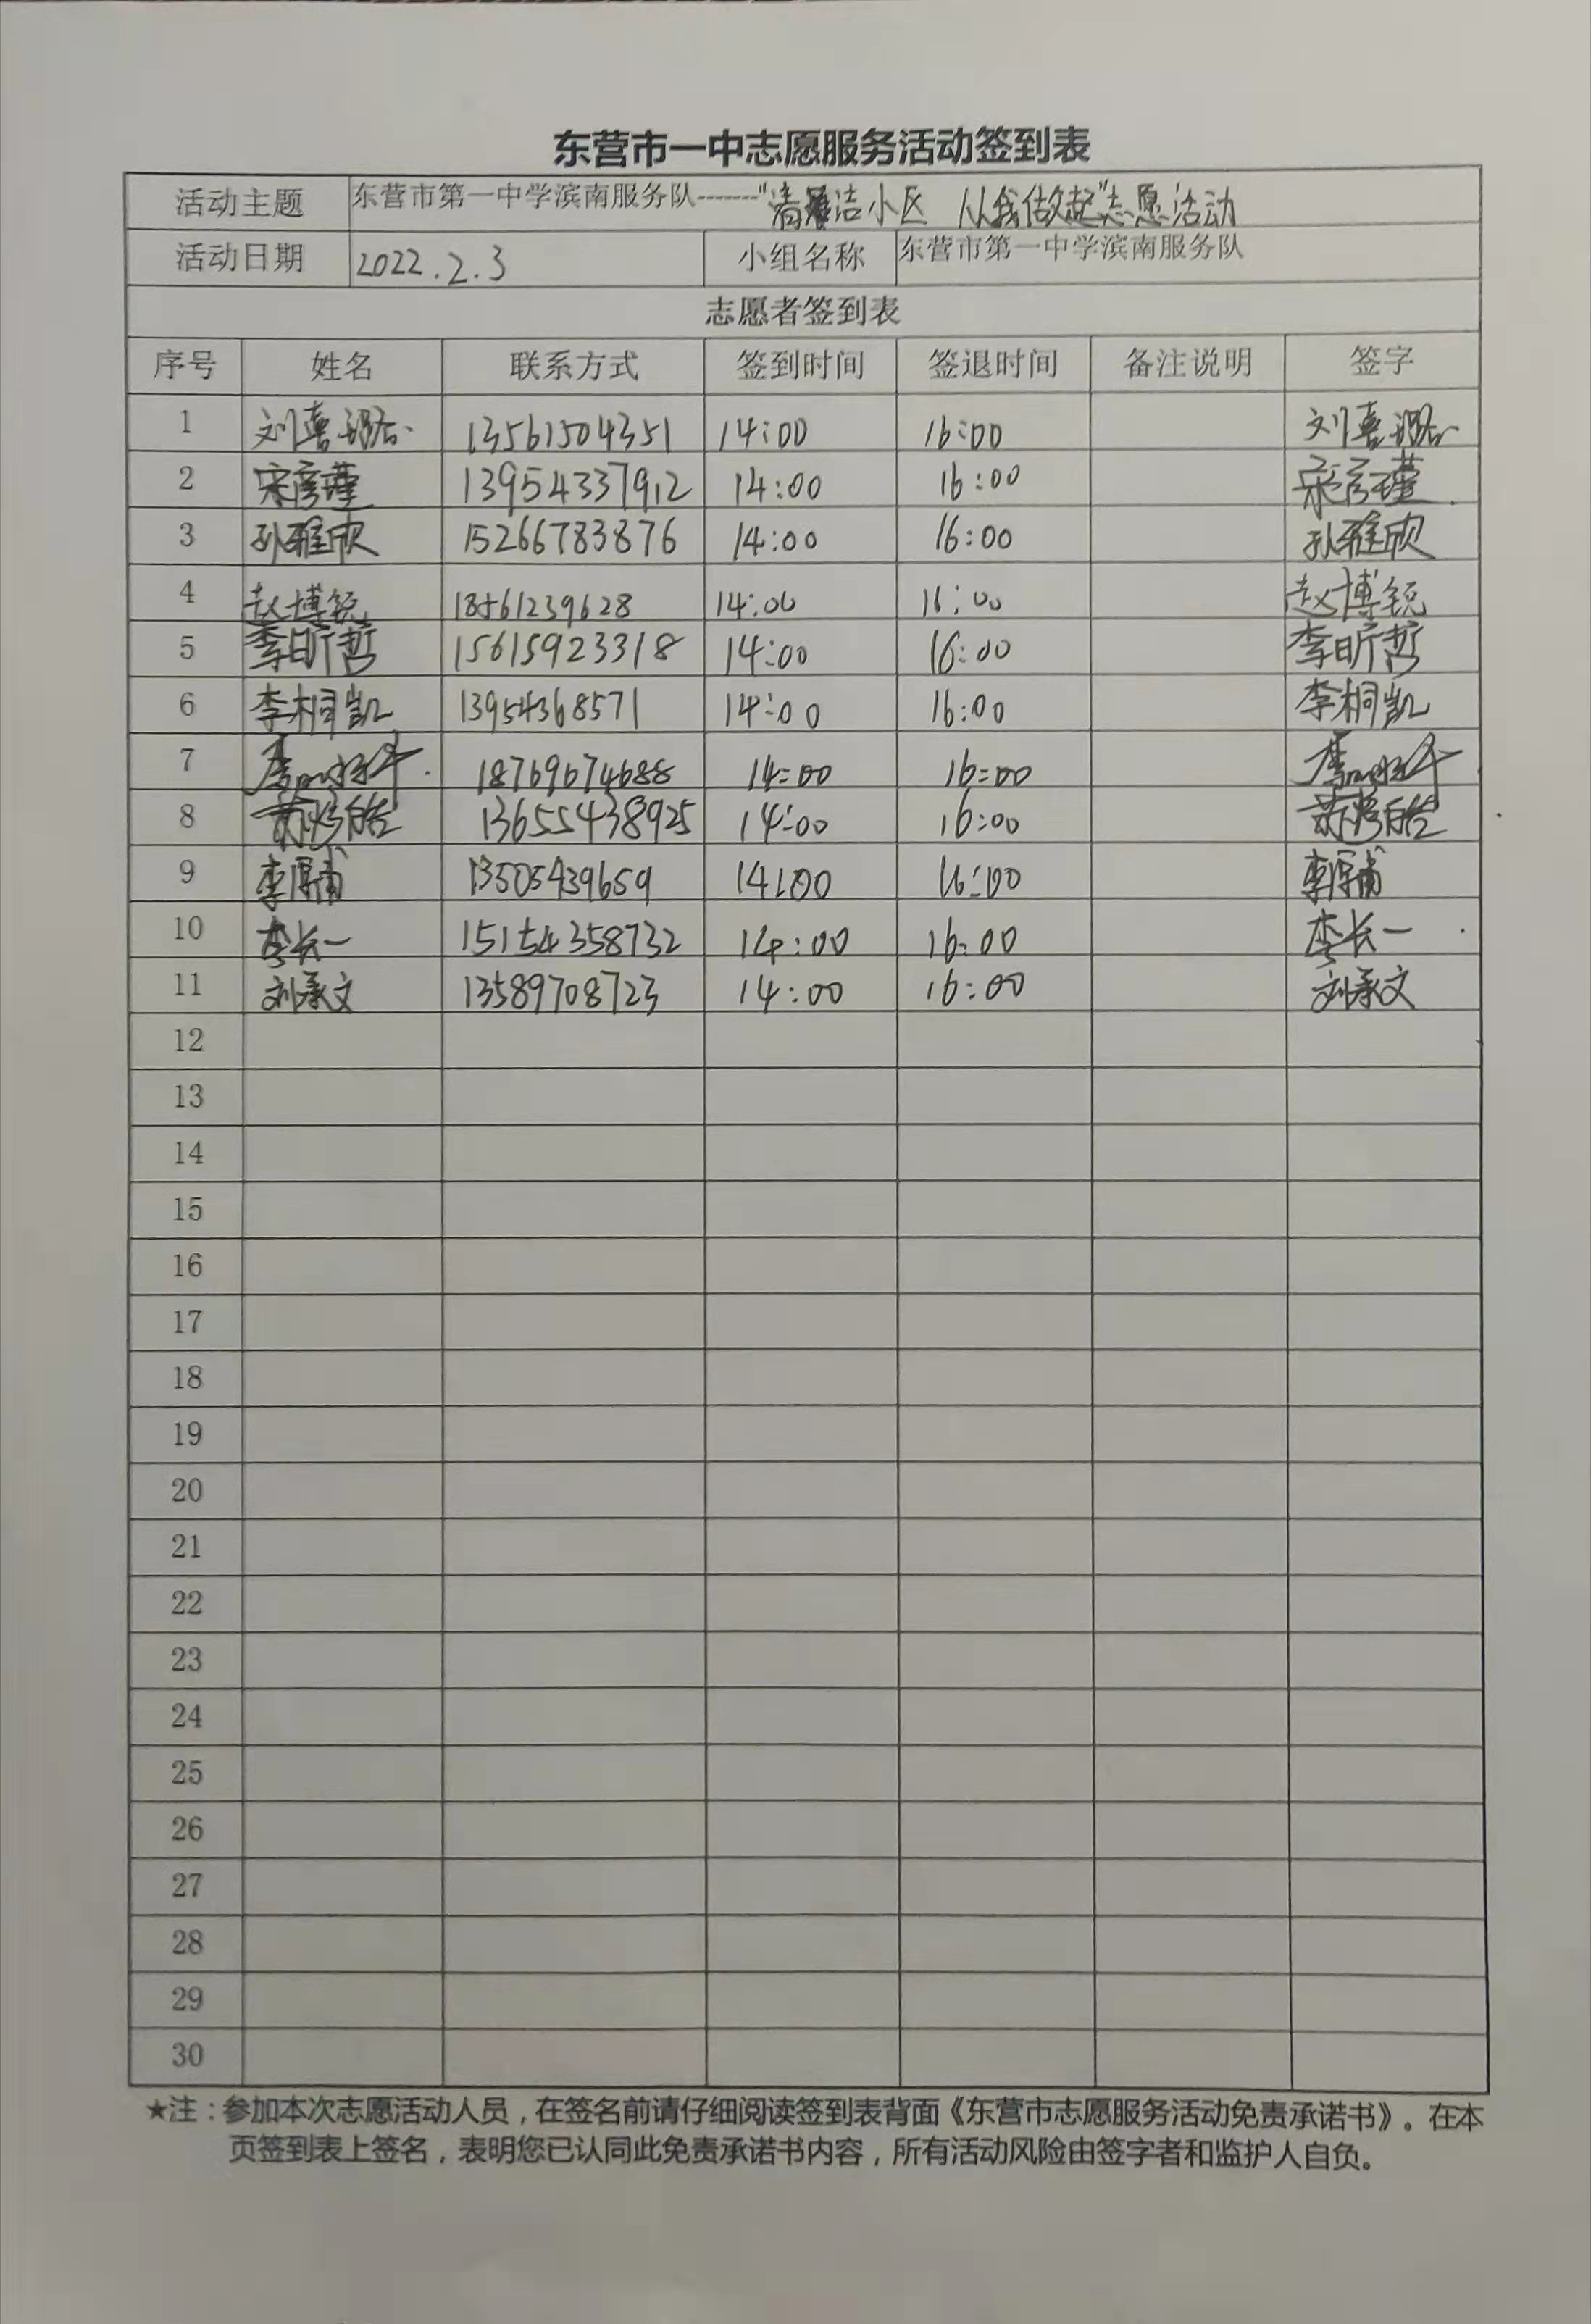 东营市一中志愿服务活动签到表
活动主题 东营市第一中学滨南服务队-------"清洁小区 从我做起"志愿活动
活动日期 2022.2.3 小组名称 东营市第一中学滨南服务队
志愿者签到表
序号 姓名 联系方式 签到时间 签退时间 备注说明 签字
1 刘喜 13561504351 14:00 16:00 刘喜
2 宋彦瑾 13954337912 14:00 16:00 宋彦瑾
3 孙雅欣 15266783876 14:00 16:00 孙雅欣
4 赵博锐 18561239628 14:00 16:00 赵博锐
5 李昕哲 15615923318 14:00 16:00 李昕哲
6 李桐凯 13954368571 14:00 16:00 李桐凯
7 李 18769674688 14:00 16:00 李
8 13655438925 14:00 16:00
9 李厚甫 13505439659 14:00 16:00 李厚甫
10 李长一 15154358732 14:00 16:00 李长一
11 刘承文 13589708723 14:00 16:00 刘承文
12
13
14
15
16
17
18
19
20
21
22
23
24
25
26
27
28
29
30
★注：参加本次志愿活动人员，在签名前请仔细阅读签到表背面《东营市志愿服务活动免责承诺书》。在本
页签到表上签名，表明您已认同此免责承诺书内容，所有活动风险由签字者和监护人自负。